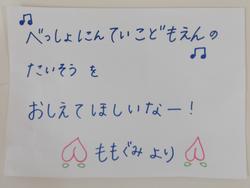 べっしょにんていこどもえんの
たいそう を
おしえてほしいなー!
ももぐみ より